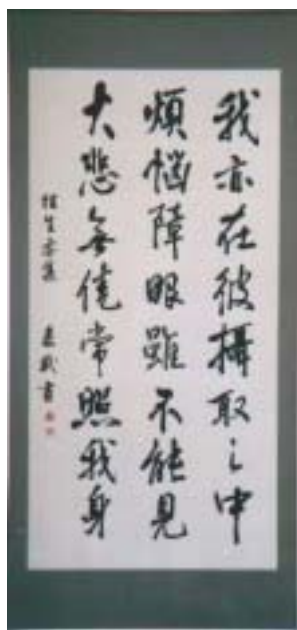 我亦在彼攝取之中
煩惱障眼雖不能見
大悲無倦常照我身
往生要集
書